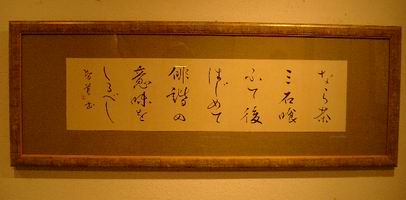 なら茶
三石喰
ふて後
はじめて
俳諧の
意味を
しるべし